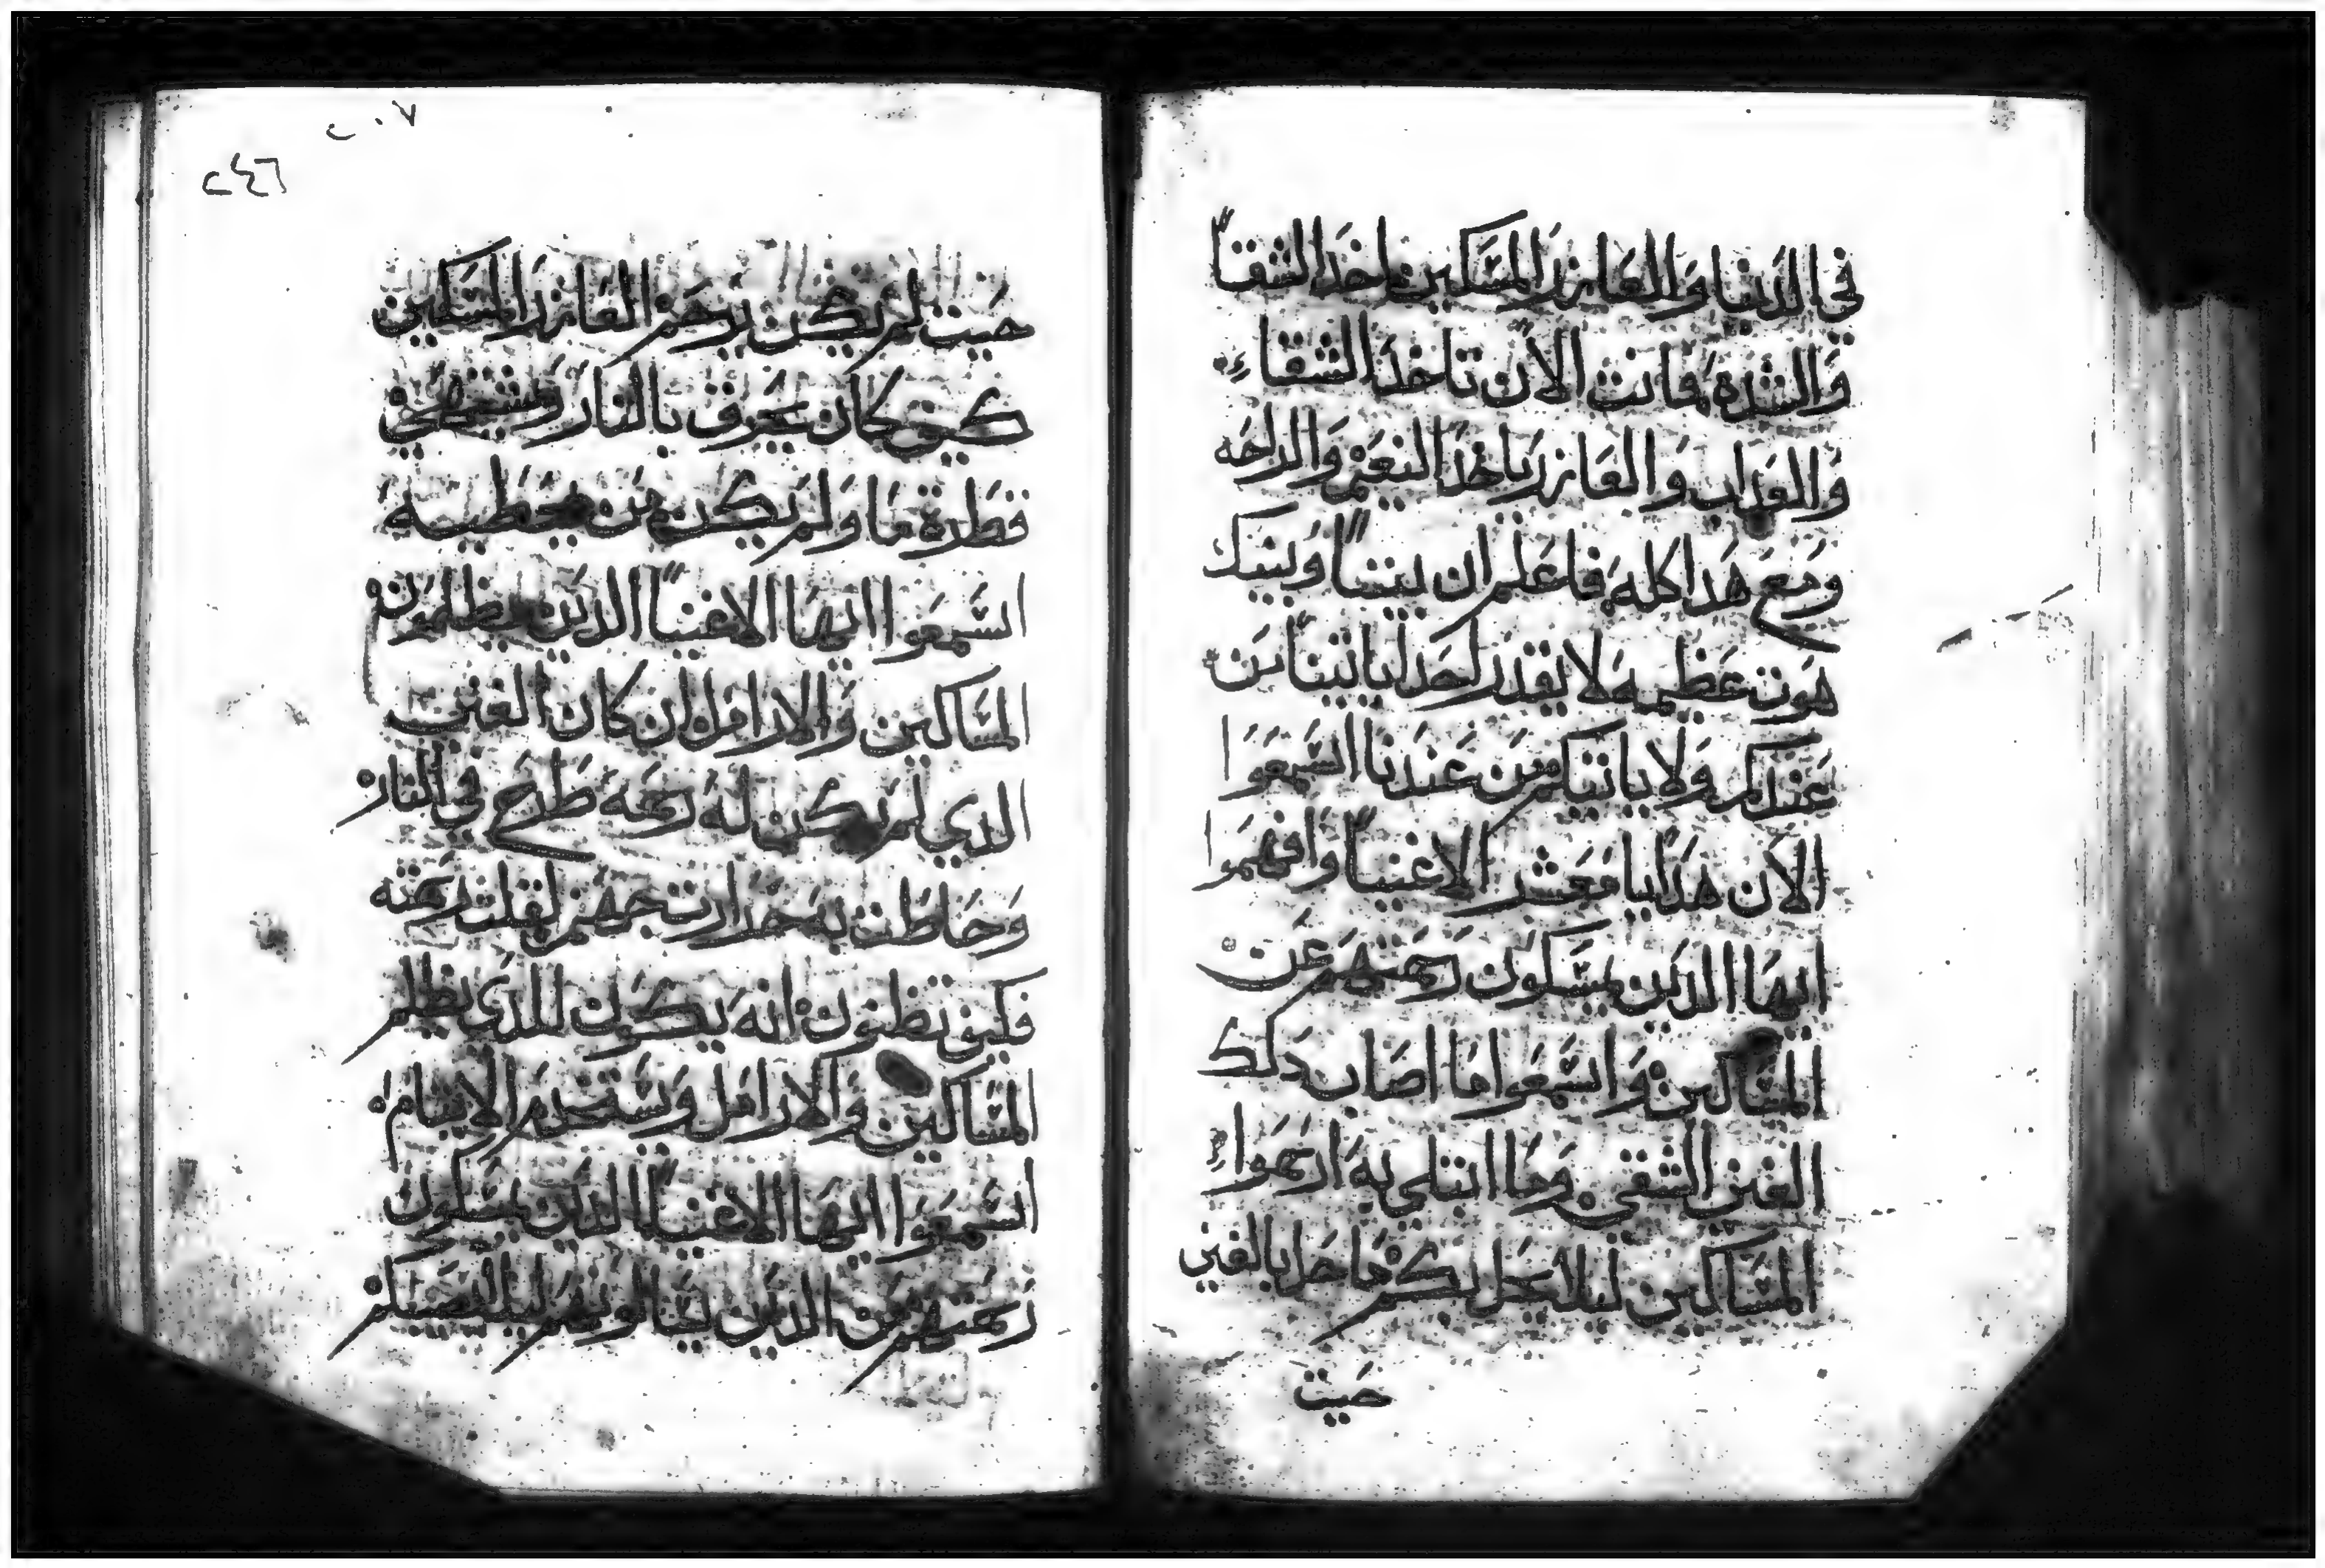 في الدنيا والعازر المسكين اخد الشقاً
والشدة فانت الآن تاخد الشقاء
والعداب والعازر ياخد النعيم والراحه
ومع هدا كله فاعلم ان بيننا وبينك
هوت عظيمه لا يقدر احد ياتينا من
عندكم ولا ياتيكم من عندنا اسمعوا
الآن هدا يا معشر الاغنياً وافهموا
ايها الدين يمسكون رحمتهم عن
المساكين واسمعوا ما اصاب دلك
الغني الشقي وما ابتلي به ارحموا
المساكين ليلا يحل بكم ما حل بالغني
حيت
٢٠٧
٢٤٦
حيت لم يكن يرحم العازر المسكين
كيف كان يحرق بالنار ويشتهي
قطرة ما ولم يكن من يعطيه
اسمعوا ايها الاغنياً الدين يظلمون
المساكين والارامل ان كان الغني
الدي لم يكن له رحمه طرح في النار
وحاطت به حرارت جهنم لقلت رحمته
فكيف تظنون انه يكون للدي يظلم
المساكين والارامل ويستخدم الايتام
اسمعوا ايها الاغنياً الدين يمسكون
رحمتهم من الدين يسالونهم ليلا يصيبكم